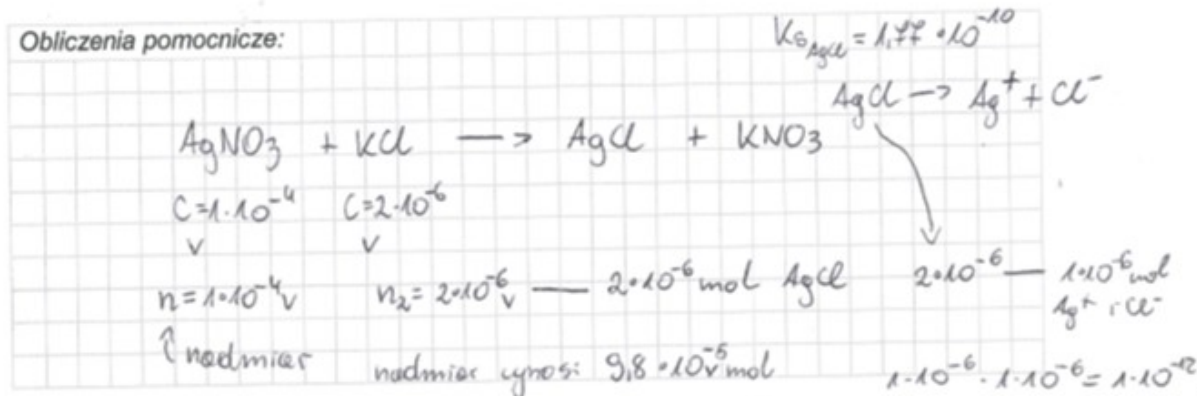 Obliczenia pomocnicze:
Ks AgCl = 1,77 · 10⁻¹⁰
AgCl → Ag⁺ + Cl⁻
AgNO₃ + KCl → AgCl + KNO₃
C = 1·10⁻⁴ C = 2·10⁻⁶
v v
n = 1·10⁻⁴ v n₂ = 2·10⁻⁶ v — 2·10⁻⁶ mol AgCl 2·10⁻⁶ — 1·10⁻⁶ mol
Ag⁺ i Cl⁻
↑ nadmiar nadmiar wynosi 9,8 · 10⁻⁵ v mol 1·10⁻⁶ · 1·10⁻⁶ = 1·10⁻¹²